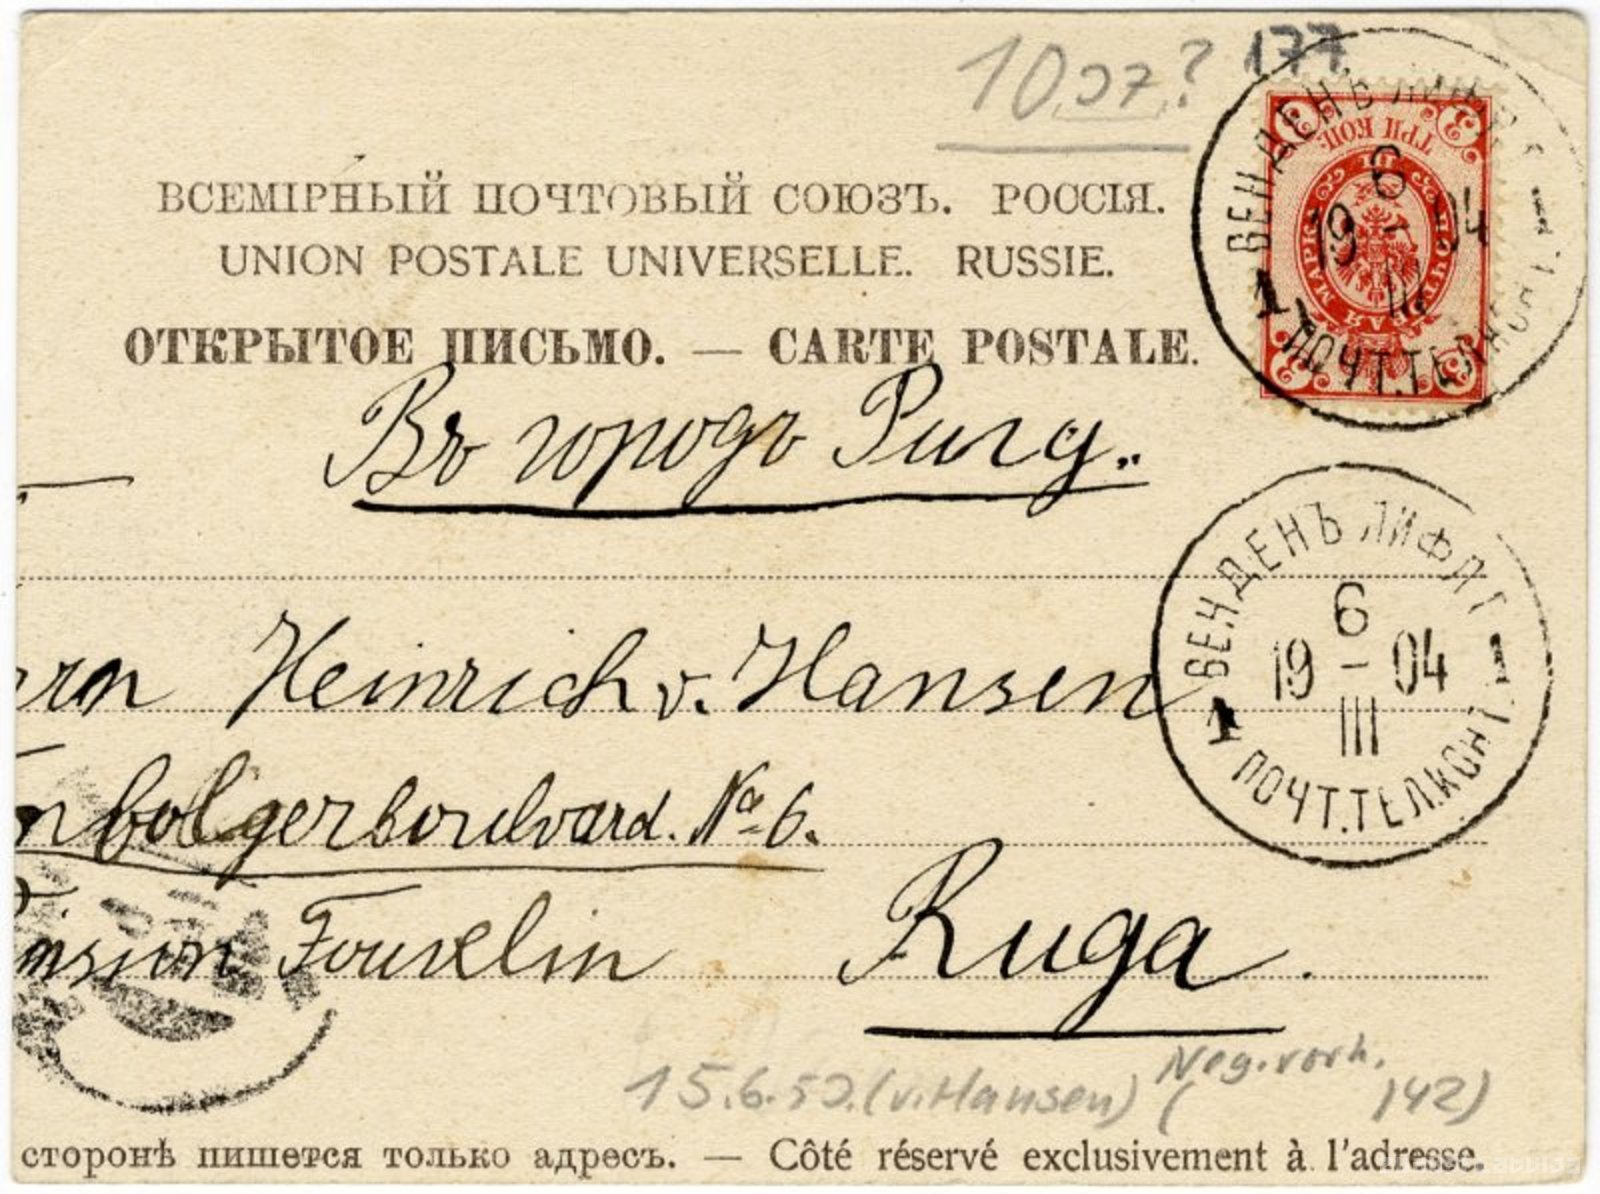 10.07.? 177
ВСЕМІРНЫЙ ПОЧТОВЫЙ СОЮЗЪ. РОССІЯ.
UNION POSTALE UNIVERSELLE. RUSSIE.
ОТКРЫТОЕ ПИСЬМО. — CARTE POSTALE.
ТРИ КОП.
3 3
ПОЧТОВАЯ МАРКА
3 3
ВЕНДЕНЪ ЛИФЛ. Г.
6
19 - 04
III
1 ПОЧТ.ТЕЛ.КОНТ.
Въ городъ Ригу.
ВЕНДЕНЪ ЛИФЛ Г
6
19 - 04
III
1 ПОЧТ.ТЕЛ.КОНТ.
rrn Heinrich v. Hansen
bolgerboulvard. No 6.
ension Ruga.
15.6.52. (v. Hansen) (Neg. vorh. 142)
сторонѣ пишется только адресъ. — Côté réservé exclusivement à l'adresse.